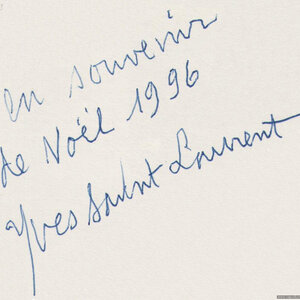 en souvenir
de Noël 1996
Yves Saint Laurent